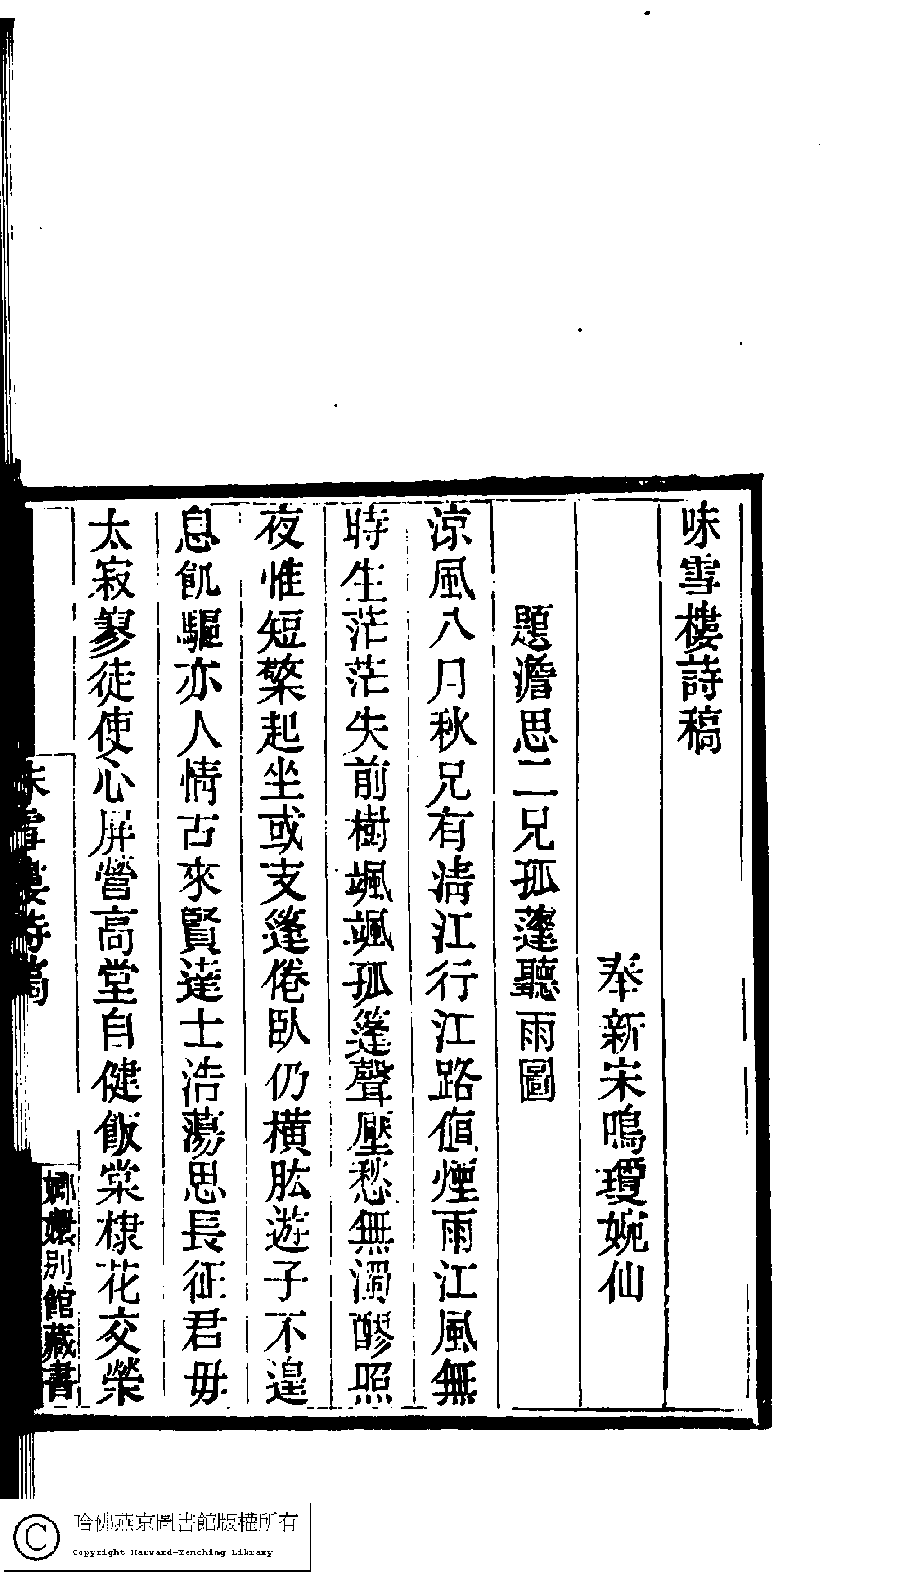 味雪樓詩稿
奉新宋鳴瓊婉仙
題澹思二兄孤蓬聽雨圖
涼風八月秋兄有淸江行江路値煙雨江風無
時生茫茫失前樹颯颯孤篷聲壓愁無濁醪照
夜惟短檠起坐或支篷倦臥仍橫肱遊子不遑
息飢驅亦人情古來賢達士浩蕩思長征君毋
太寂寥徒使心屏營高堂自健飯棠棣花交榮
味雪樓詩稿
嫏嬛別館藏書
哈佛燕京圖書館版權所有
Copyright Harvard-Yenching Library